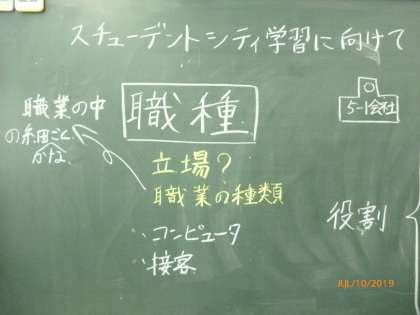 スチューデントシティ学習に向けて
職種
5-1会社
職業の中
の細ごと
かな
立場?
職業の種類
・コンピュータ
・接客
役割
JUL/10/2019